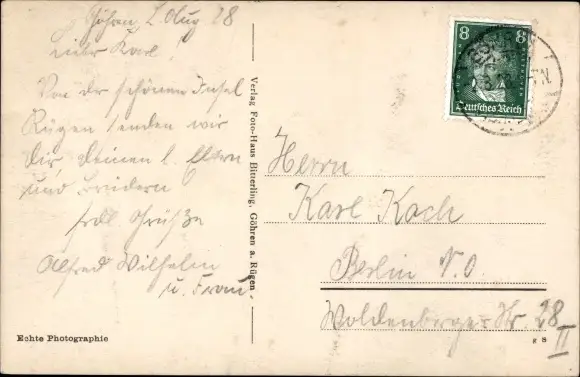 Göhren, 2. Aug 28
Lieber Karl!
Von der schönen Insel
Rügen senden wir
Dir deinen l. Eltern
und Brüdern
frdl. Grüße
Alfred Wilhelm
u. Frau.
Echte Photographie
Verlag Foto-Haus Bitterling, Göhren a. Rügen
8 8
Deutsches Reich
Herrn
Karl Koch
Berlin N.O.
Woldenberger Str. 28
II